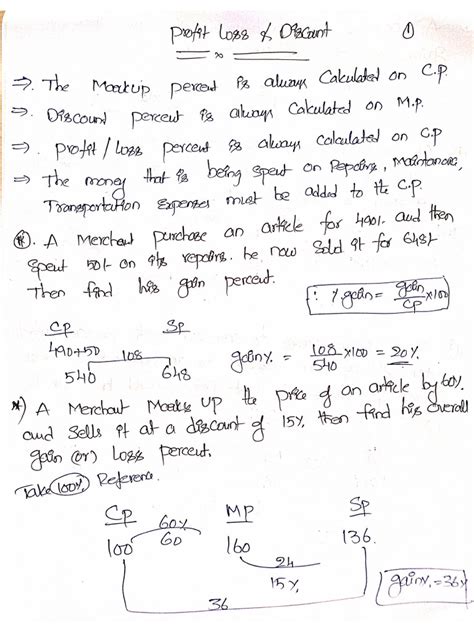 Profit Loss & Discount ①
⇒. The Markup percent is always Calculated on C.P.
⇒. Discount percent is always Calculated on M.P.
⇒. profit/Loss percent is always calculated on C.P
⇒ The money that is being spent on Repairs, Maintanance,
Transportation Expenses must be added to the C.P.
*. A Merchant purchase an article for 490/- and then
spent 50/- on its repairs. he now sold it for 648/-
Then find his gain percent.
∴ % gain = gain/CP ×100
CP SP
490+50 108
540 648
gain% = 108/540 ×100 = 20%
*) A Merchant Marks up the price of an article by 60%.
and sells it at a discount of 15% then find his overall
gain (or) Loss percent.
Take 100% Reference.
CP 60% MP SP
100 60 160 136.
24
15%
36
gain% = 36%